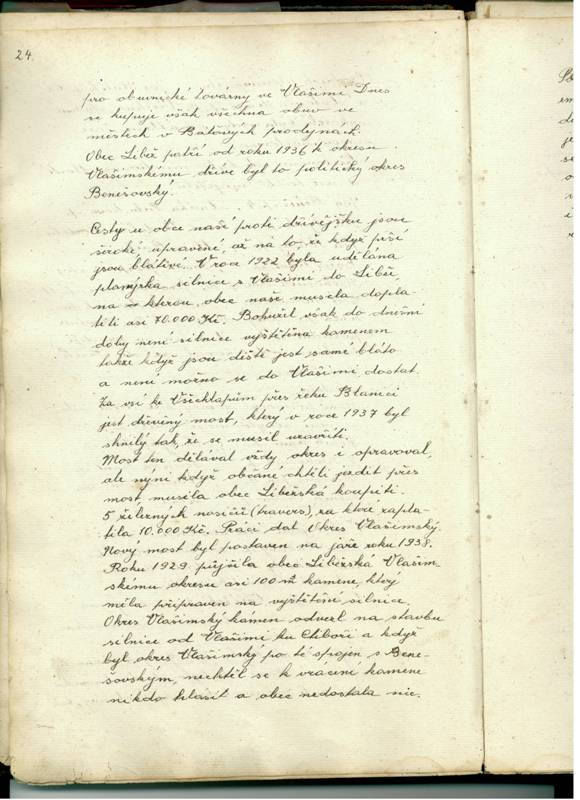 24.
pro obuvnické továrny ve Vlašimi. Dnes
se kupuje však všechna obuv ve
městech v Baťových prodejnách.
Obec Liběž patří od roku 1936 k okresu
Vlašimskému dříve byl to politický okres
Benešovský.
Cesty u obce naší proti dřívějšku jsou
široké, upravené, až na to, že když prší
jsou blátivé. V roce 1922 byla udělána
planýrka silnice s Vlašimi do Liběže,
na kterou obec naše musela dopla-
titi asi 70.000 Kč. Bohužil však do dnešní
doby není silnice vyštětěna kamenem
takže když jsou deště jest samé bláto
a neni možno se do Vlašimi dostat.
Za vsí ke Všechlapům přes řeku Blanici
jest dřevěný most, který v roce 1937 byl
shnilý tak, že se musil uzavříti.
Most ten dělával vždy okres i opravoval,
ale nyní když občané chtěli jezdit přes
most, musila obec Liběžská koupiti
5 železných nosičů (travers), za které zapla-
tila 10.000 Kč. Práci dal Okres Vlašimský.
Nový most byl postaven na jaře roku 1938.
Roku 1929 půjčila obec Liběžská Vlašim-
skému okresu asi 100 m³ kamene, který
měla připraven na vyštětění silnice.
Okres Vlašimský kamen odvezl na stavbu
silnice od Vlašimi ku Ctiboři a když
byl okres Vlašimský po té spojen s Bene-
šovským, nechtěl se k vrácení kamene
nikdo hlásit a obec nedostala nic.